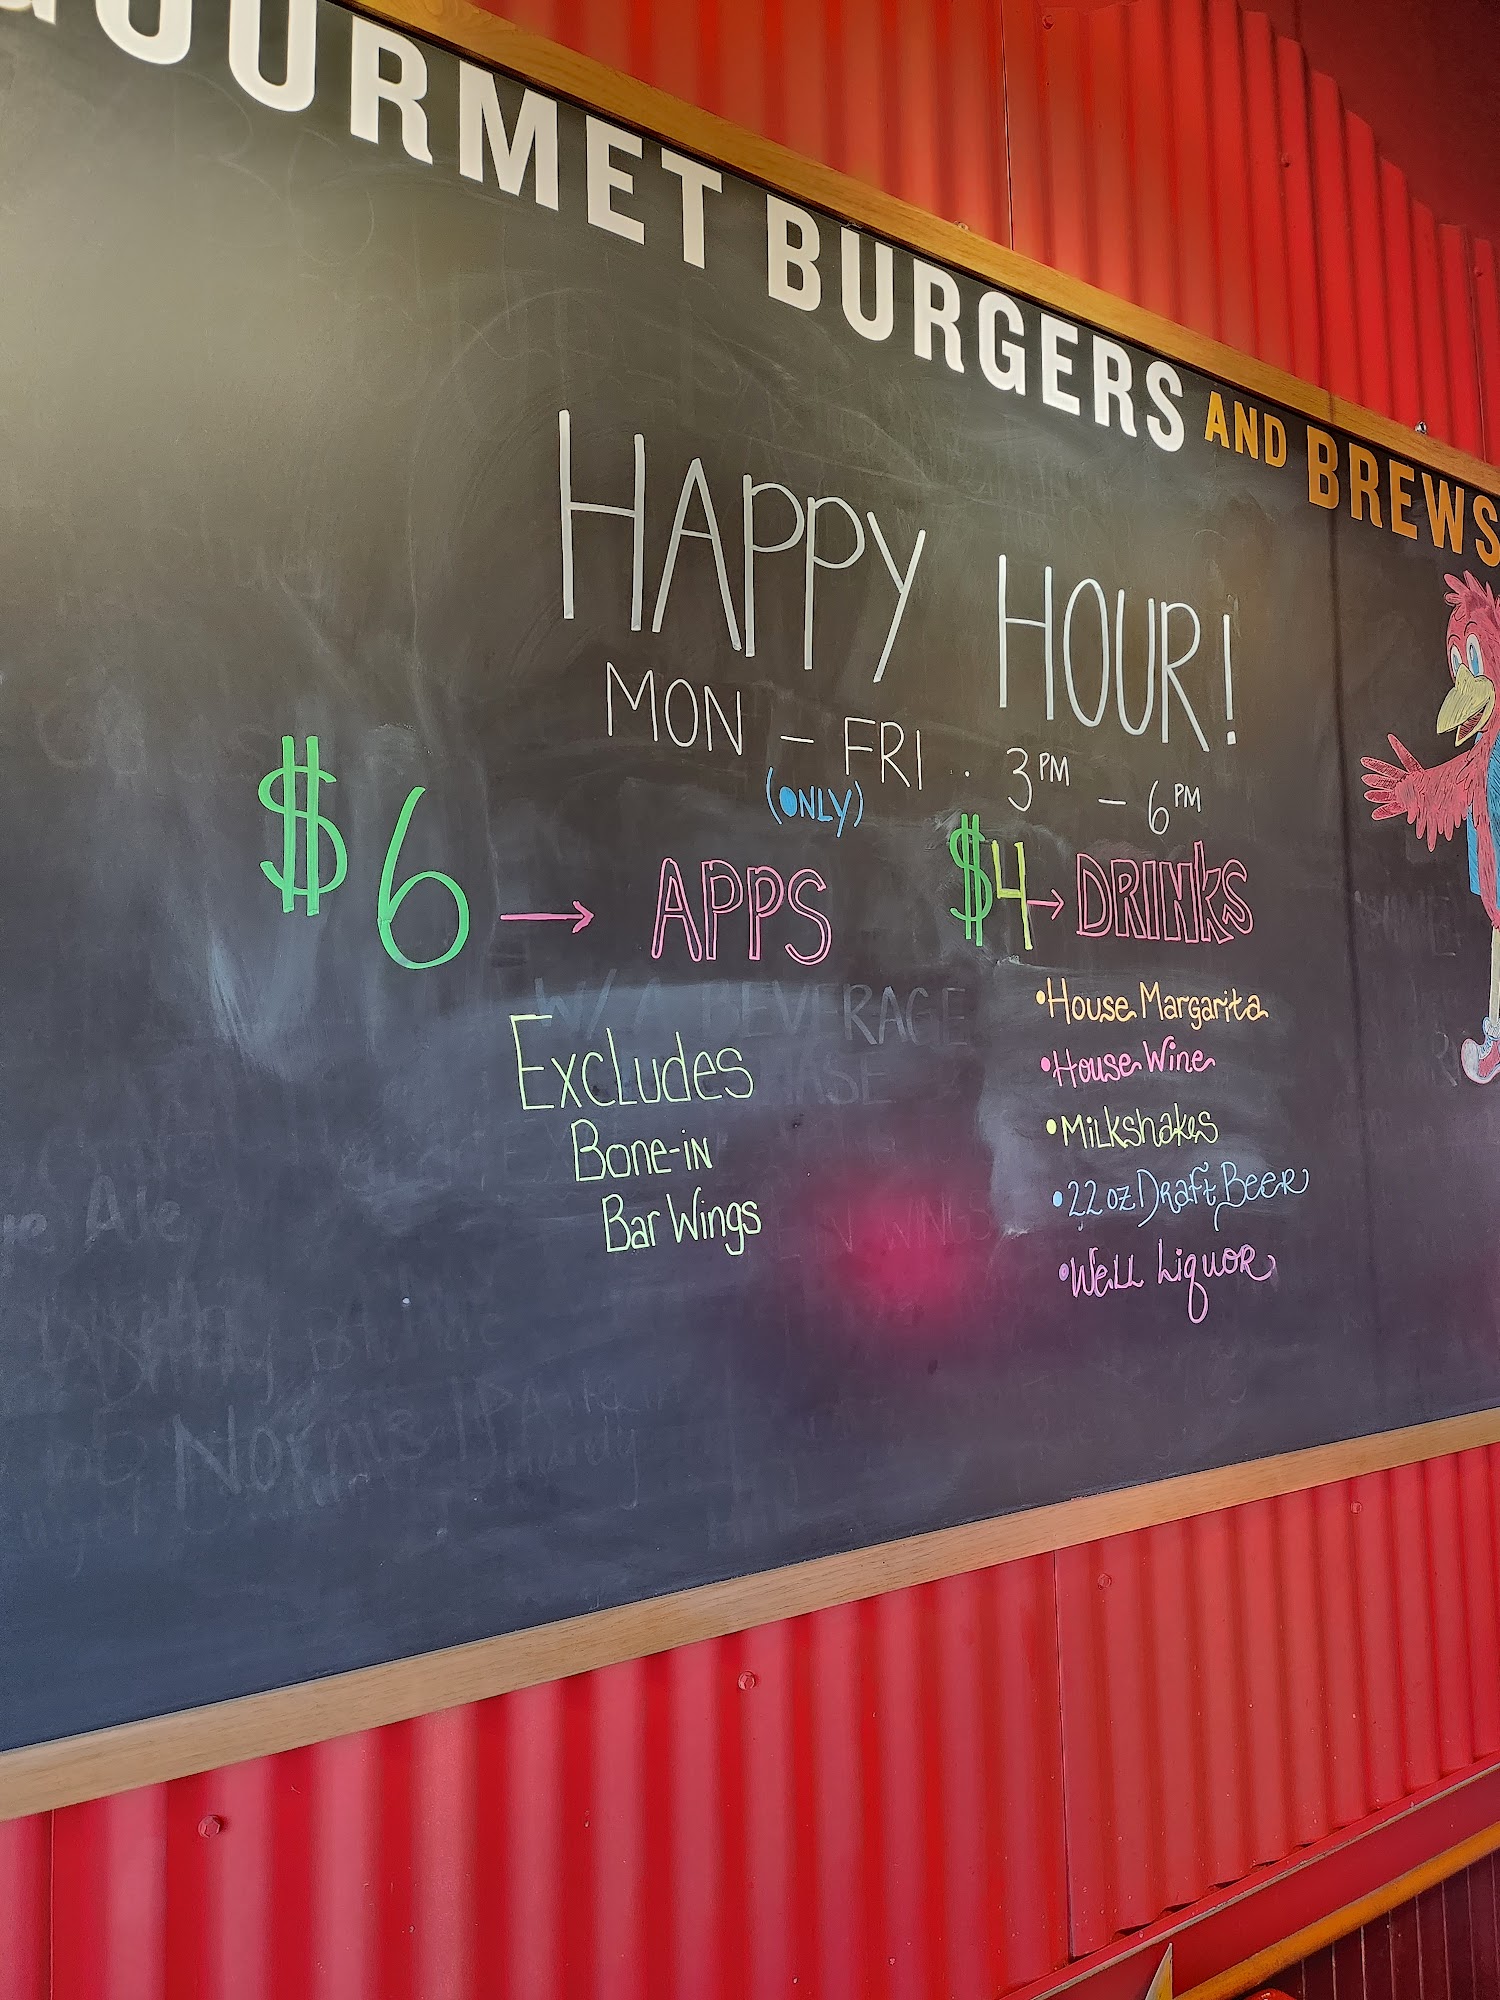 GOURMET BURGERS AND BREWS
HAPPY HOUR!
MON - FRI · 3PM - 6PM
(ONLY)
$6 → APPS
Excludes
Bone-in
Bar Wings
$4 → DRINKS
•House Margarita
•House Wine
•Milkshakes
•22 oz Draft Beer
•Well Liquor
W/ A BEVERAGE
WINGS
Ale